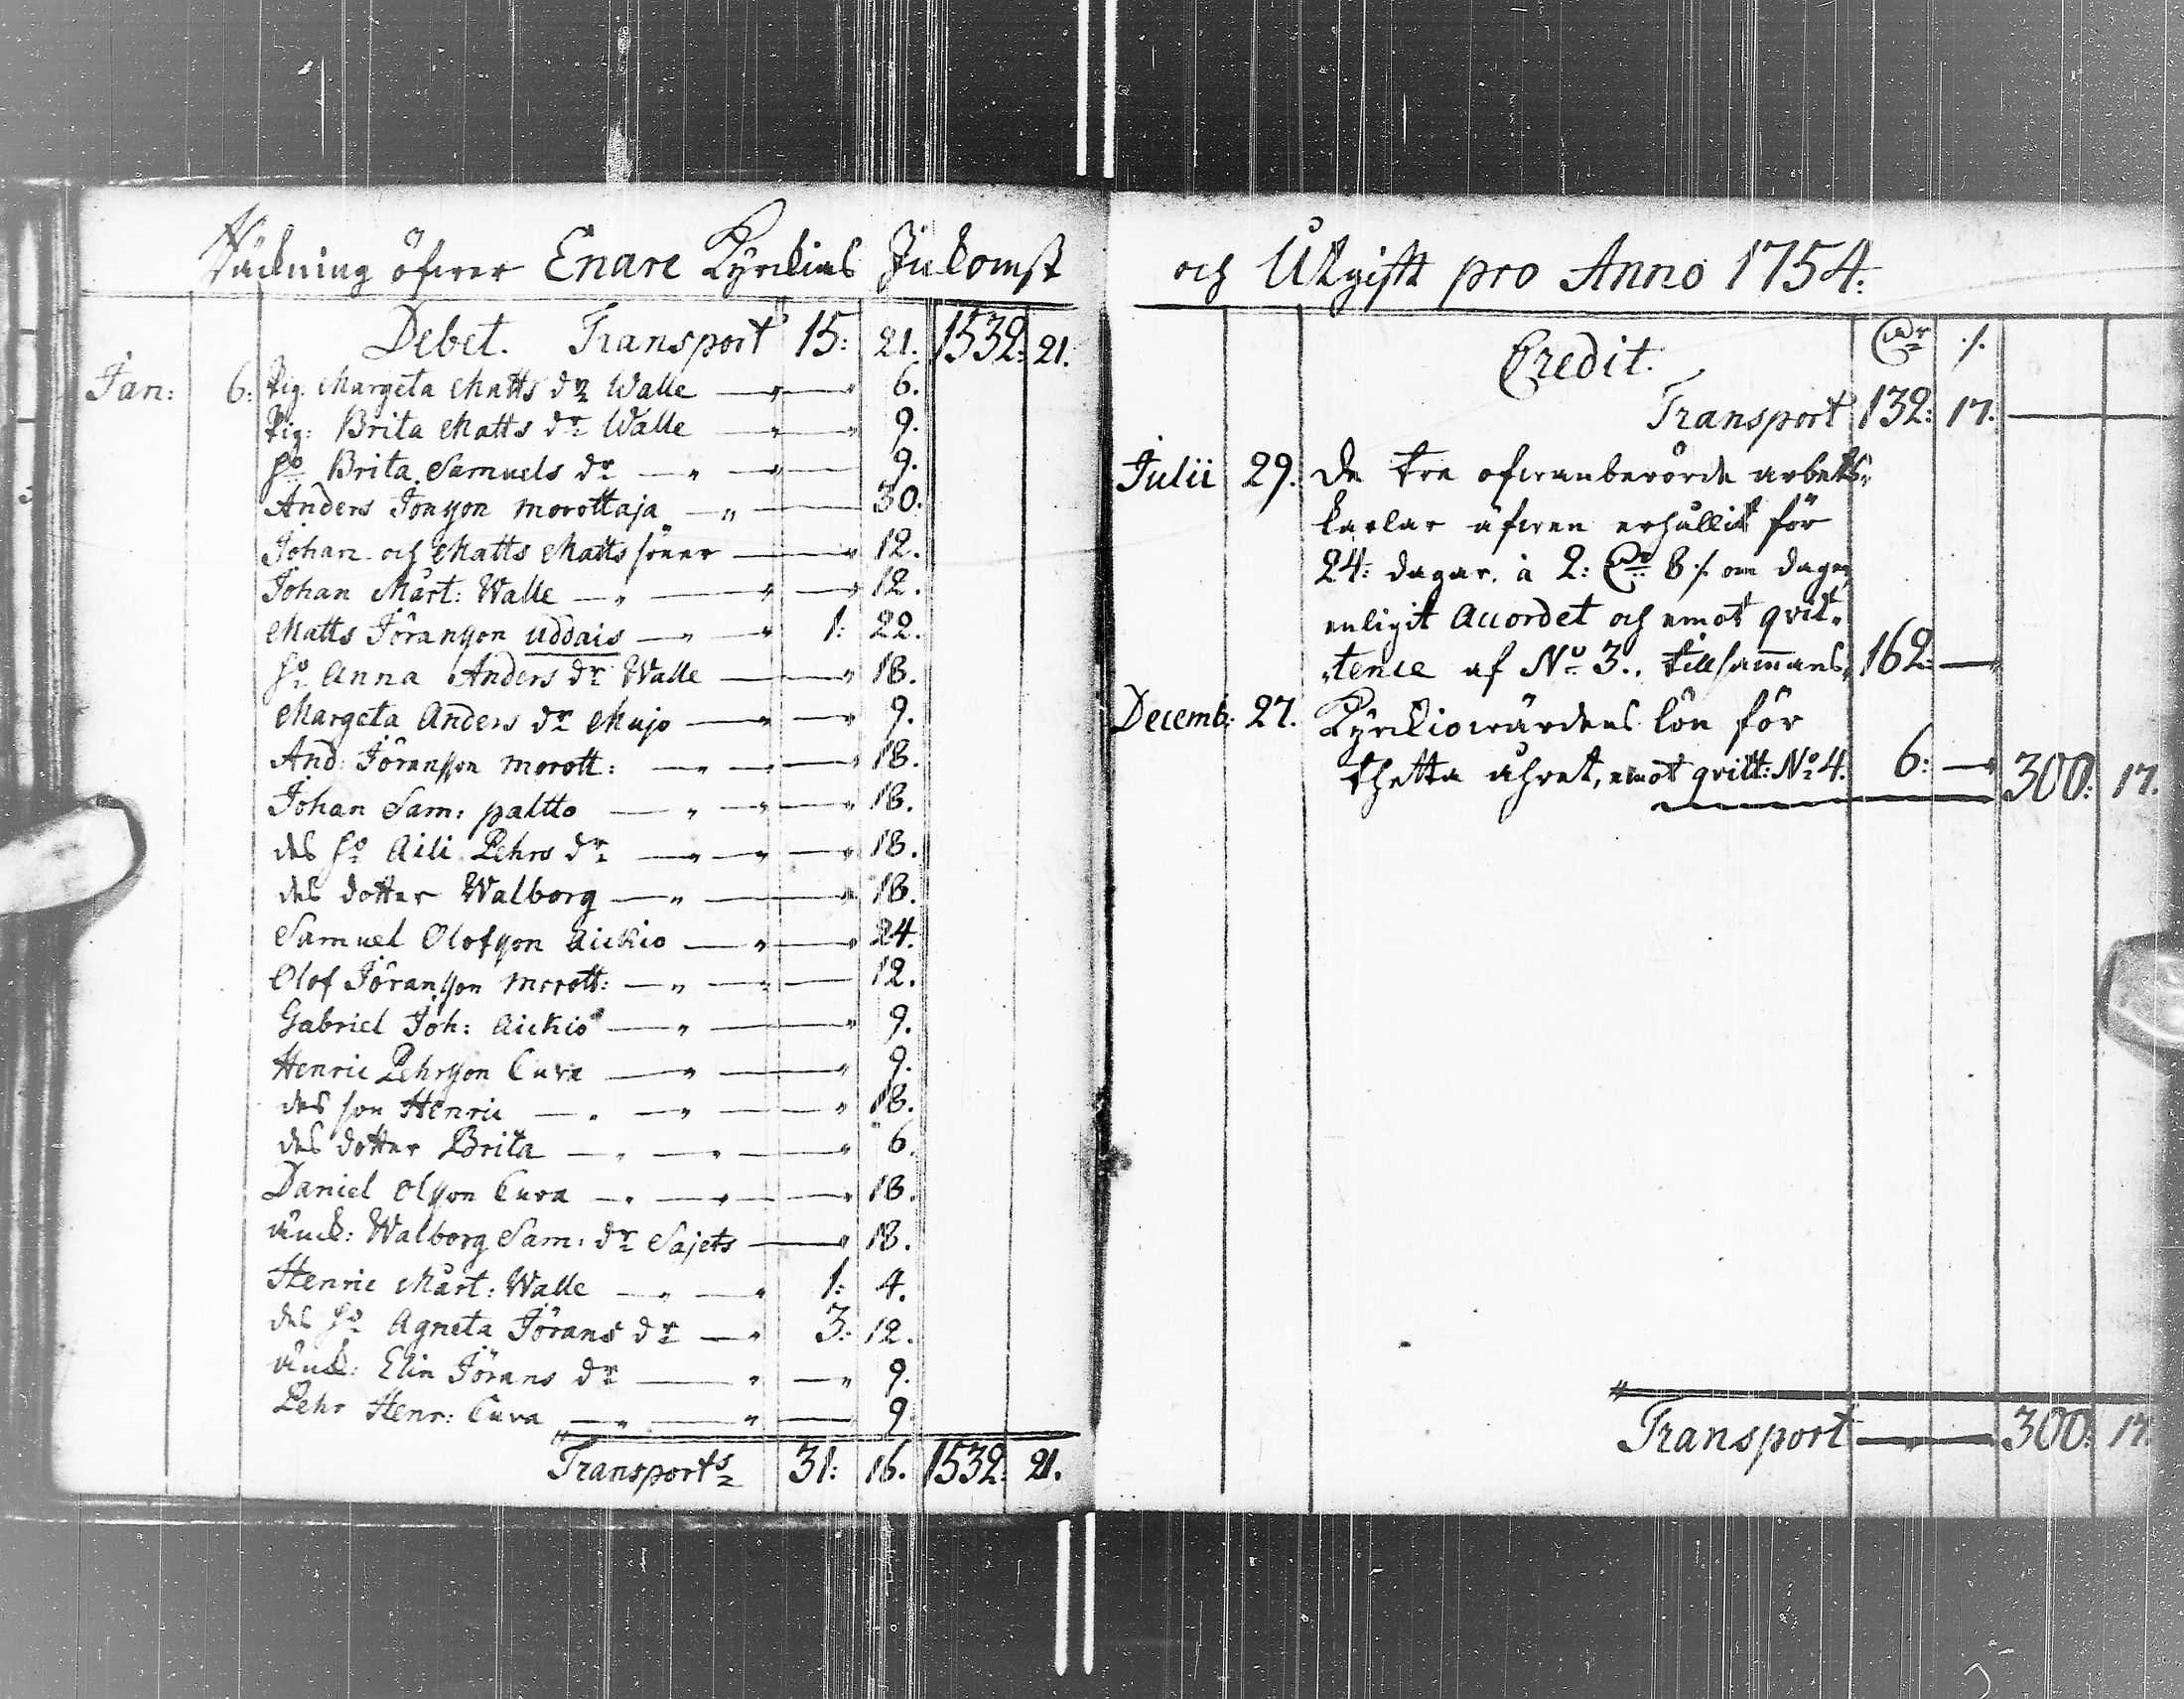 Räckning öfwer Enare Kÿrckias Inkomst
Debet. Transport 15: 21. 1532: 21.
Jan: 6: Pig. Margeta Matts dr Walle — " — " 6.
Pig: Brita Matts dr Walle — " — " 9.
ho Brita Samuels dr — " — " 9.
Anders Jonsson Morottaja — " — 30.
Johan och Matts Matts söner — " 12.
Johan Mårt: Walle — " — " — " 12.
Matts Jöransson uddais — " — " 1: 22.
ho Anna Anders dr Walle — " 18.
Margeta Anders dr Mujo — " — " 9.
And: Jöransson Morott: — " — " 18.
Johan Sam: paltto — " — " — " 18.
des ho Aili Pehrs dr — " — " — " 18.
des dotter Walborg — " — " 18.
Samuel Olofsson Aickio — " — " 24.
Olof Jöransson Morott: — " — " — 12.
Gabriel Joh: Aickio — " — " 9.
Henric Pehrsson Cuva — " — " 9.
des son Henric — " — " — " 18.
des dotter Brita — " — " — " 6.
Daniel Olsson Cuva — " — " — " 18.
änck: Walborg Sam: dr Sajets — " 18.
Henric Mårt: Walle — " — " 1: 4.
des ho Agneta Jörans dr — " 3: 12.
änck: Elin Jörans dr — " — " 9.
Pehr Henr: Cuva — " — " — 9.
Transports 31: 16. 1532: 21.
och Utgift pro Anno 1754:
Credit.
Transport 132: 17. —
Julii 29. De tre ofwanberörde arbets-
karlar äfwen erhållit för
24: dagar. à 2: 8 om dagen
enligit Accordet och emot qvit-
"tence af No 3., tillsammans, 162: — "
Decemb: 27. Kÿrckiowärdens lön för
thetta åhret, emot qvitt: No 4. 6: — " 300: 17.
Transport — " — 300: 17.